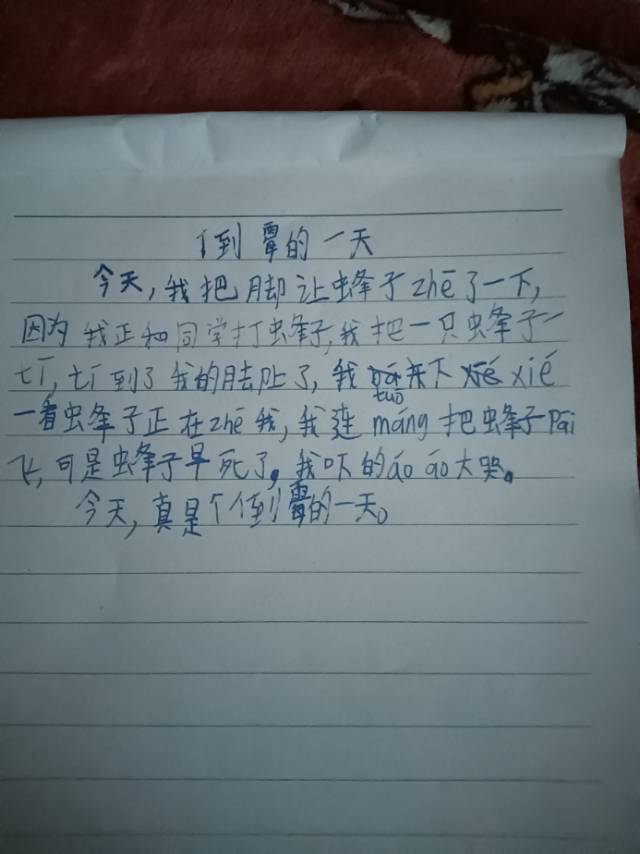 倒霉的一天
今天,我把脚让蜂子zhē了一下,
因为我正和同学打蜂子,我把一只蜂子一
tī,tī到了我的脚止了,我tuō下xié
一看蜂子正在zhē我,我连máng把蜂子pāi
飞,可是蜂子早死了。我吓的áo áo大哭。
今天,真是个倒霉的一天。